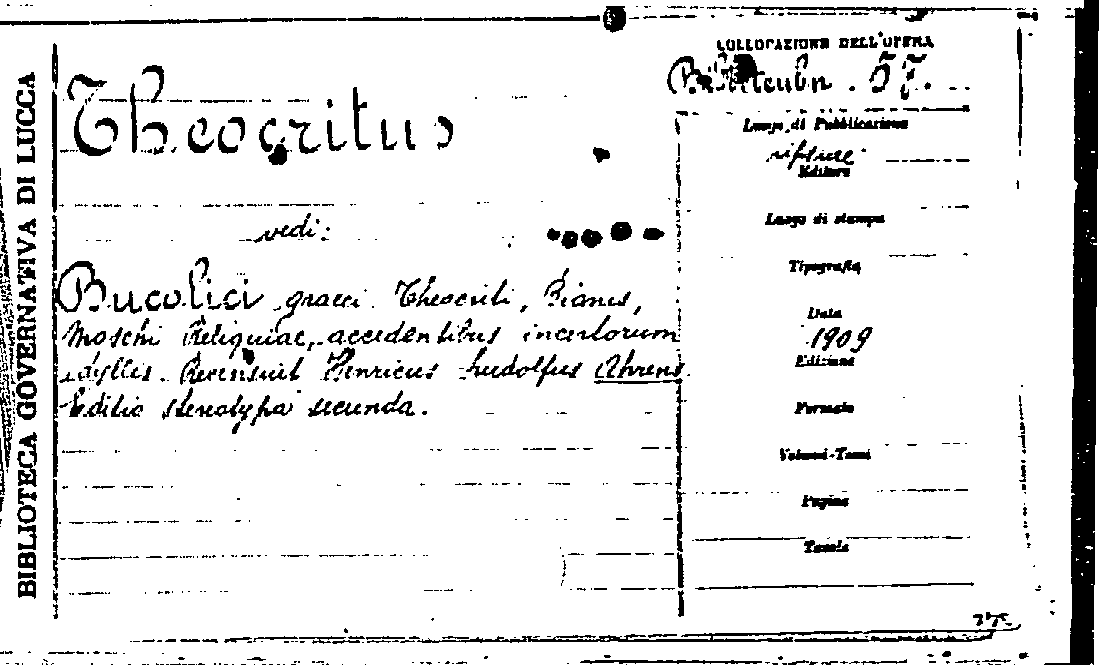 BIBLIOTECA GOVERNATIVA DI LUCCA
COLLOCAZIONE DELL'OPERA
57.
Theocritus
Luogo di Pubblicazione
Lipsiae
Editore
vedi:
Luogo di stampa
Tipografia
Bucolici graeci Theocriti, Bionis,
Data
Moschi Reliquiae, accedentibus incertorum
1909
idyllis. Recensuit Henricus Ludolfus Ahrens.
Edizione
Editio stereotypa secunda.
Formato
Volumi-Tomi
Pagine
Tavole